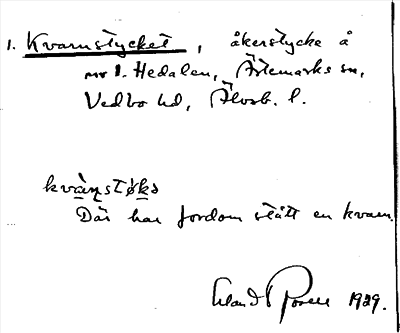 1. Kvarnstycket, åkerstycke å
nr 1. Hedalen, Ärtemarks sn,
Vedbo hd, Älvsb. l.
Där har fordom stått en kvarn.
Erland Rosell 1929.